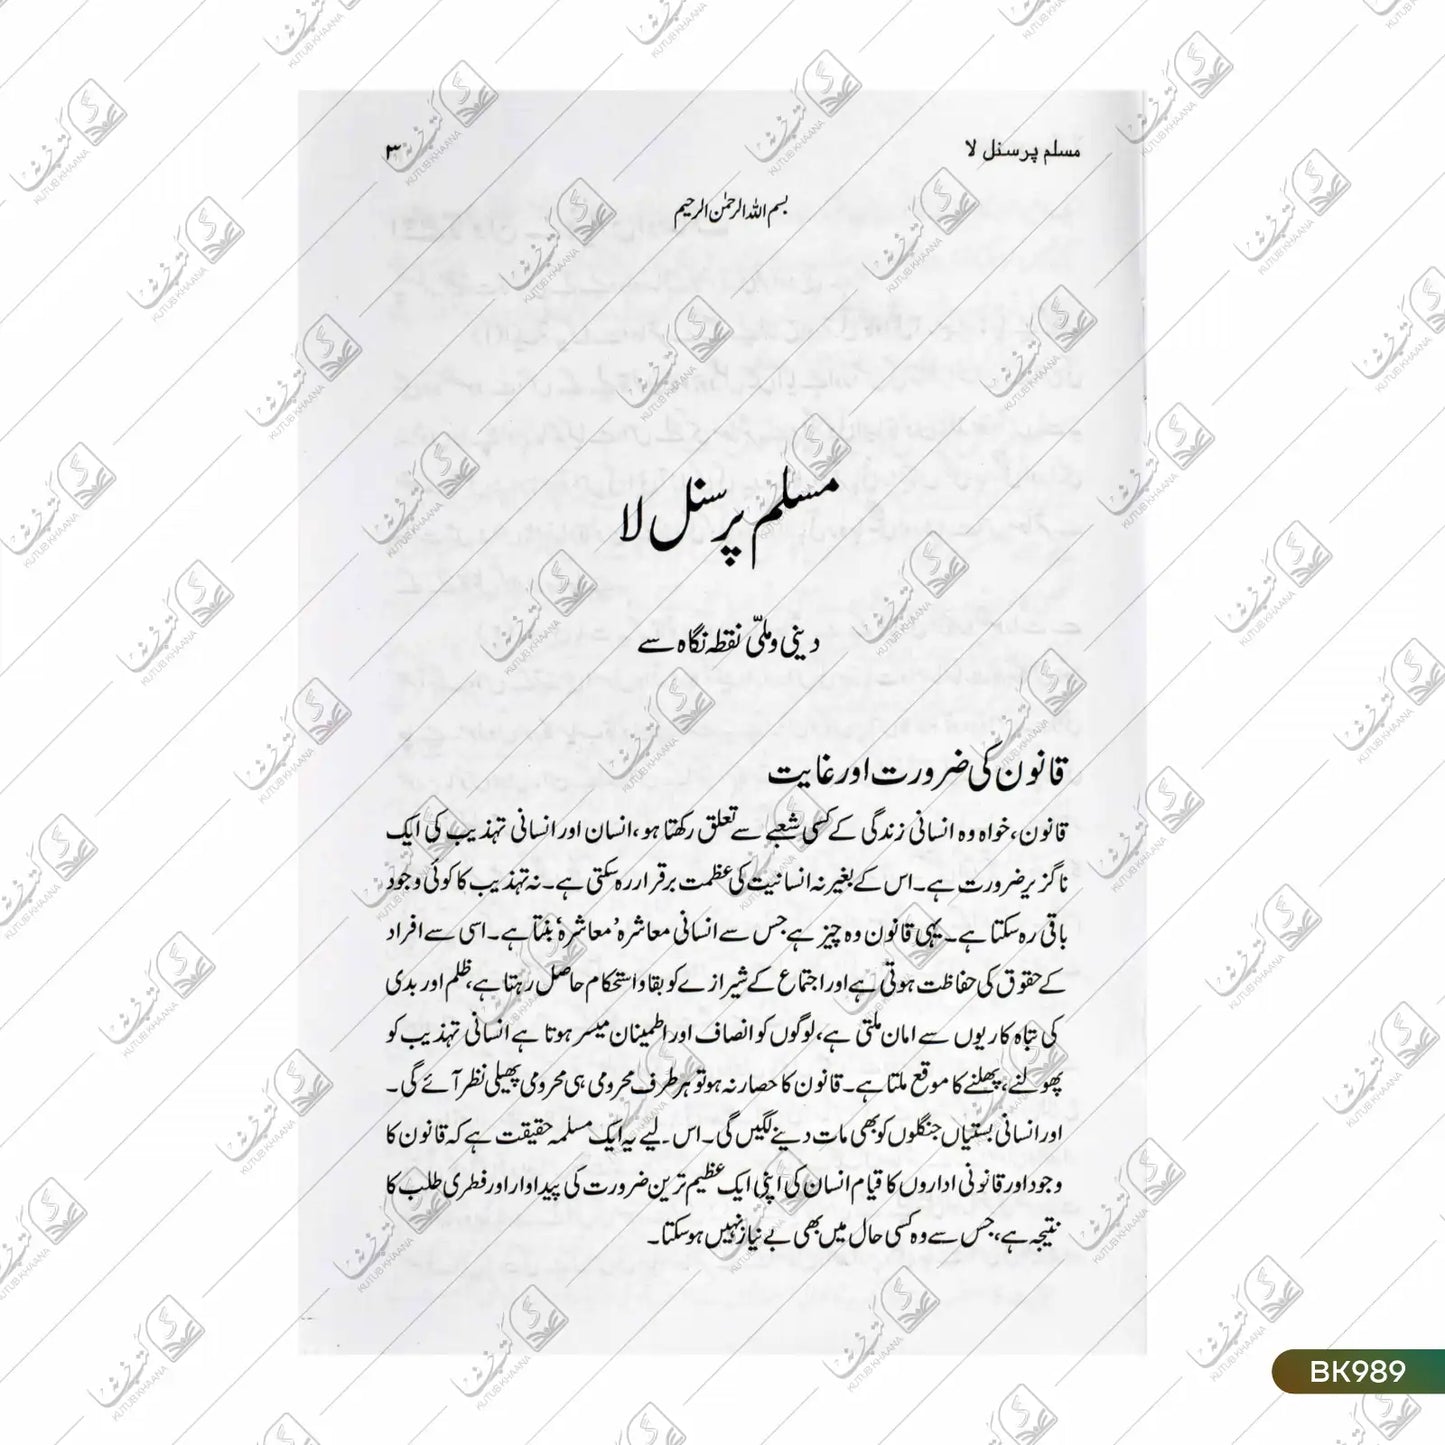 مسلم پرسنل لا
۳
بسم اللہ الرحمٰن الرحیم
مسلم پرسنل لا
دینی و ملیّ نقطہ نگاہ سے
قانون کی ضرورت اور غایت
قانون، خواہ وہ انسانی زندگی کے کسی شعبے سے تعلق رکھتا ہو، انسان اور انسانی تہذیب کی ایک
ناگزیر ضرورت ہے۔ اس کے بغیر نہ انسانیت کی عظمت برقرار رہ سکتی ہے۔ نہ تہذیب کا کوئی وجود
باقی رہ سکتا ہے۔ یہی قانون وہ چیز ہے جس سے انسانی معاشرہ ’معاشرہ‘ بنتا ہے۔ اسی سے افراد
کے حقوق کی حفاظت ہوتی ہے اور اجتماع کے شیرازے کو بقا و استحکام حاصل رہتا ہے، ظلم اور بدی
کی تباہ کاریوں سے امان ملتی ہے، لوگوں کو انصاف اور اطمینان میسر ہوتا ہے انسانی تہذیب کو
پھولنے، پھلنے کا موقع ملتا ہے۔ قانون کا حصار نہ ہو تو ہر طرف محرومی ہی محرومی پھیلی نظر آئے گی۔
اور انسانی بستیاں جنگلوں کو بھی مات دینے لگیں گی۔ اس لیے یہ ایک مسلمہ حقیقت ہے کہ قانون کا
وجود اور قانونی اداروں کا قیام انسان کی اپنی ایک عظیم ترین ضرورت کی پیداوار اور فطری طلب کا
نتیجہ ہے، جس سے وہ کسی حال میں بھی بے نیاز نہیں ہو سکتا۔
KUTUB KHAANA
BK989